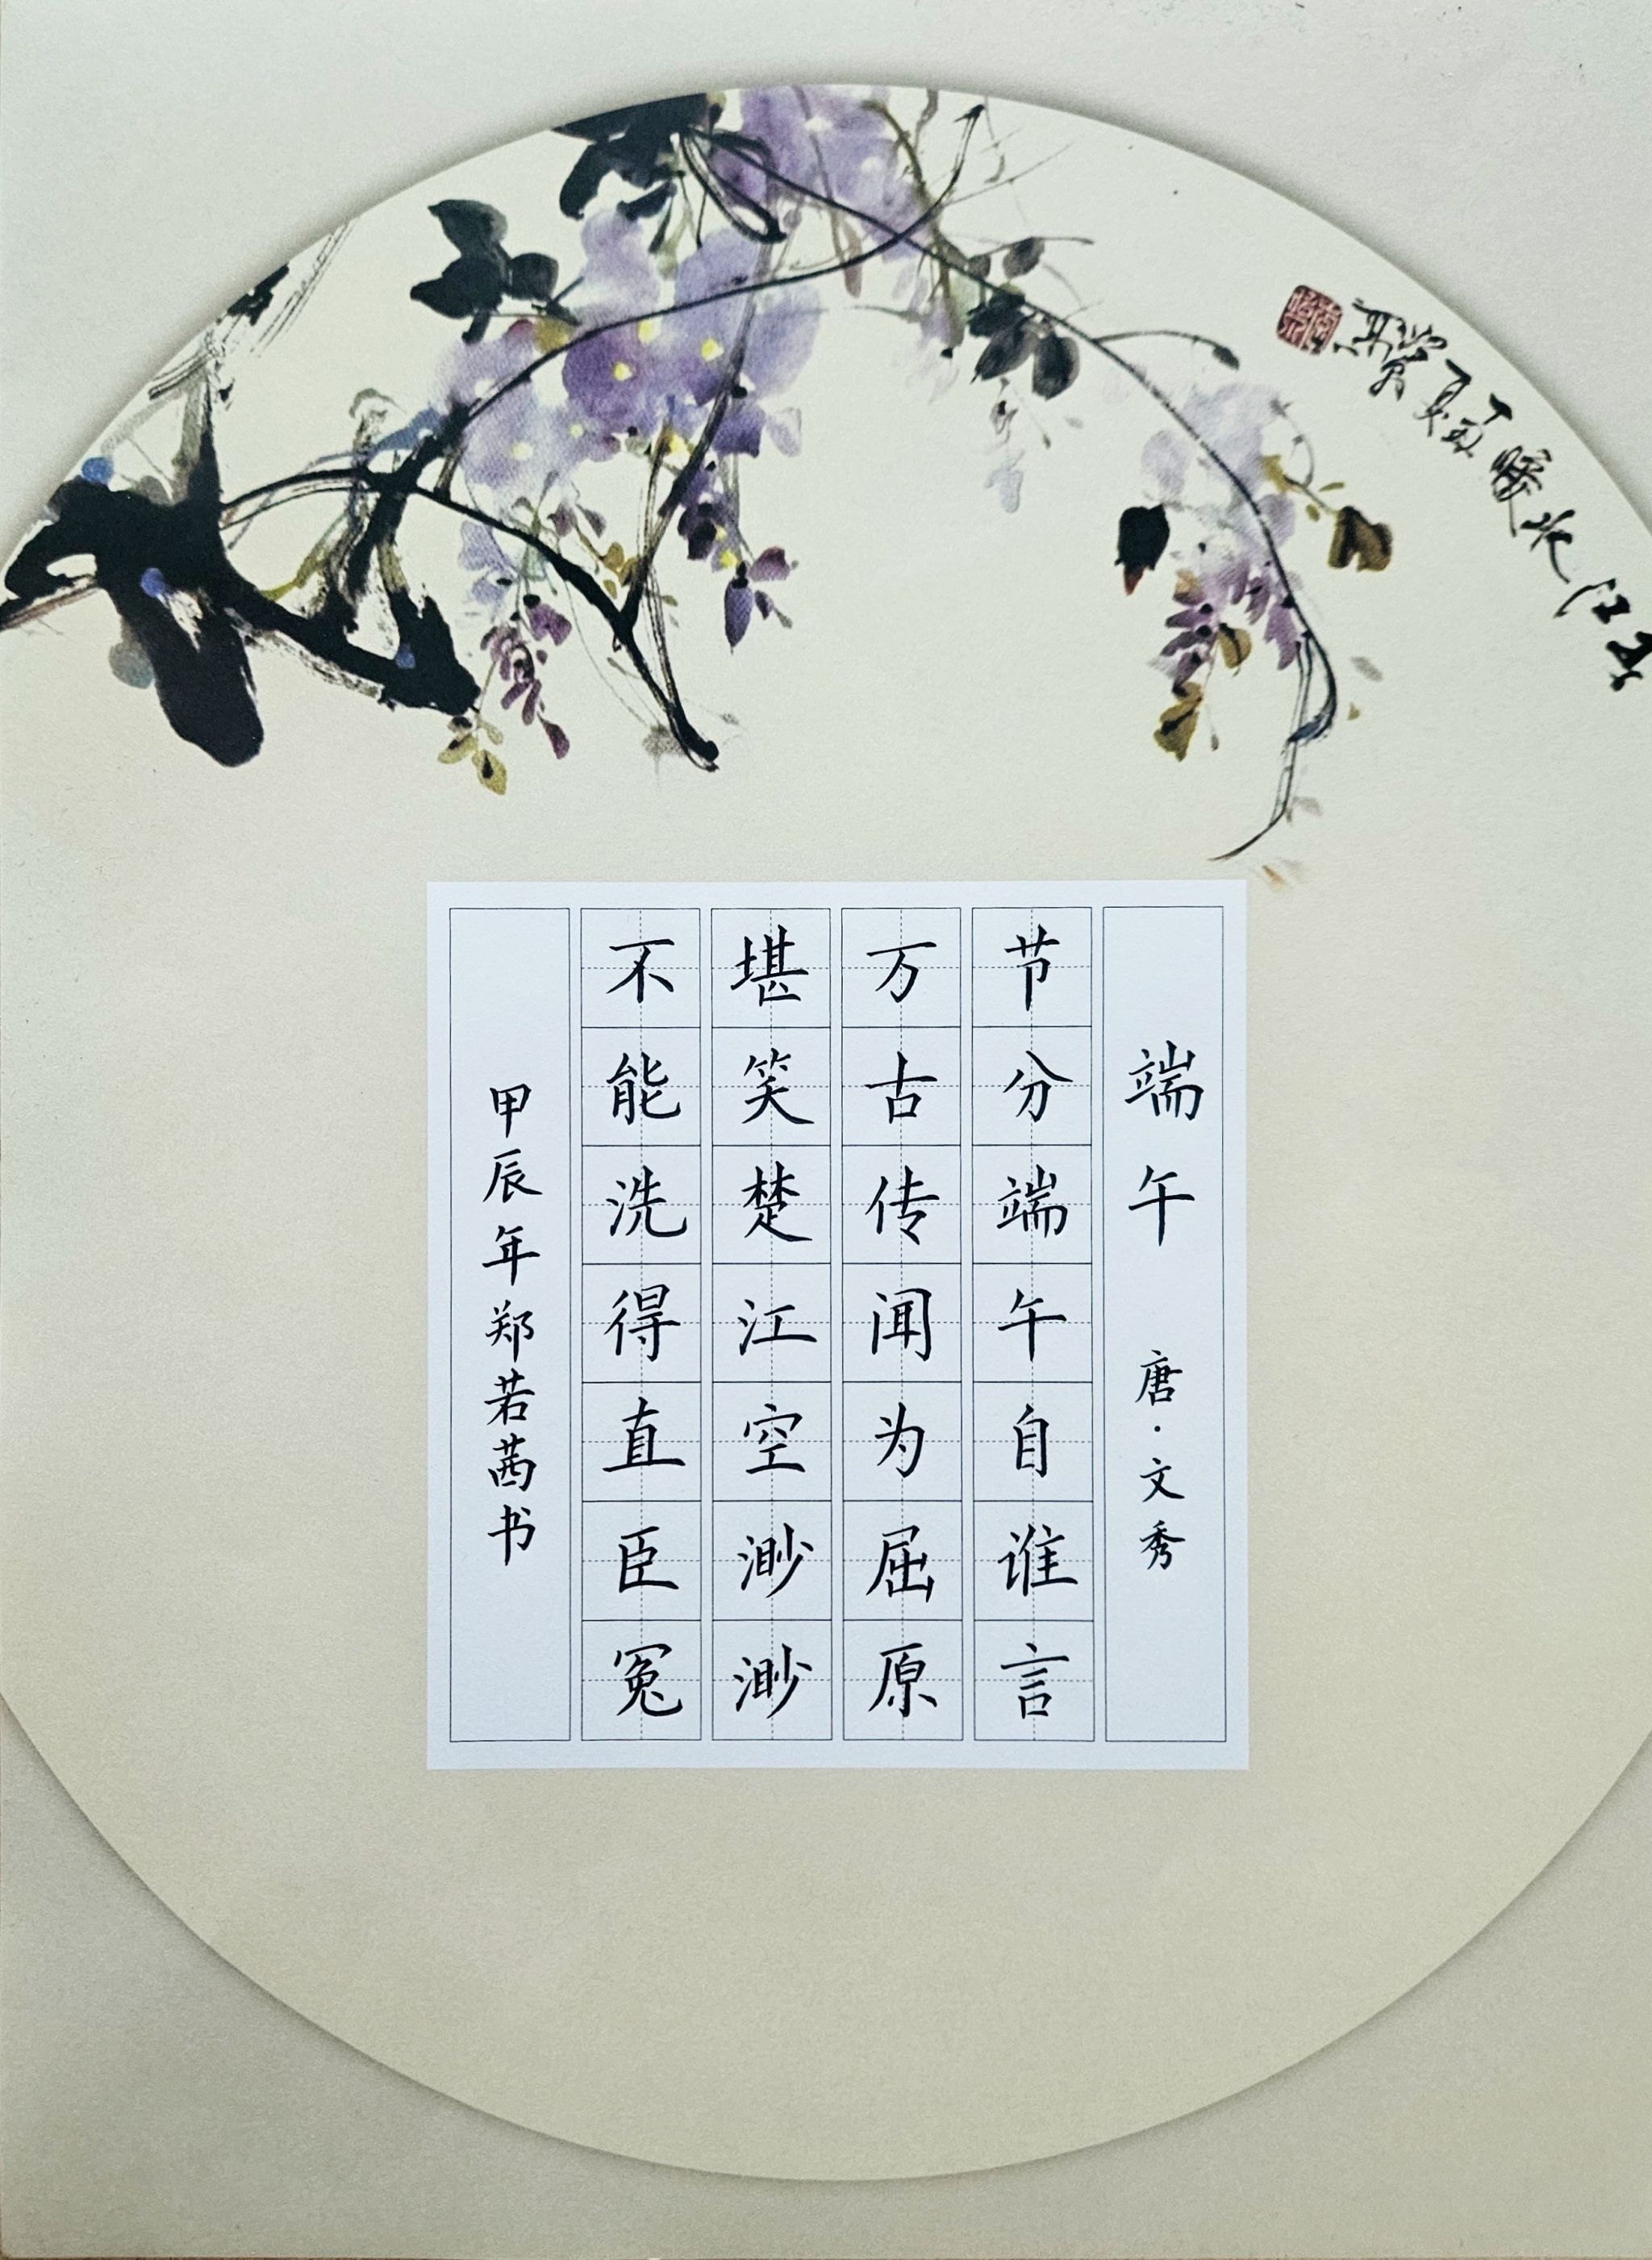 端午 唐·文秀
节分端午自谁言
万古传闻为屈原
堪笑楚江空渺渺
不能洗得直臣冤
甲辰年郑若茜书